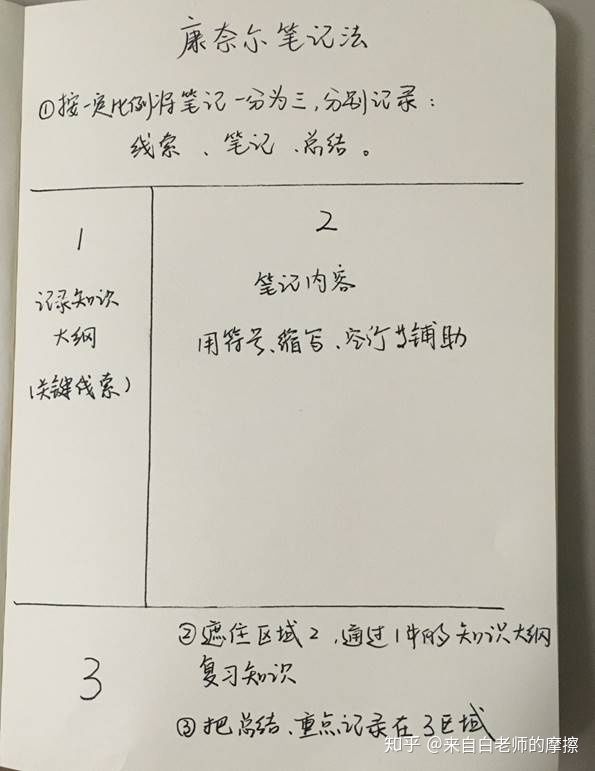 康奈尔笔记法
①按一定比例将笔记一分为三，分别记录：
线索、笔记、总结。
1
记录知识
大纲
（关键线索）
2
笔记内容
用符号、缩写、空行等辅助
3
②遮住区域2，通过1中的知识大纲
复习知识
③把总结、重点记录在3区域
知乎 @来自白老师的摩擦